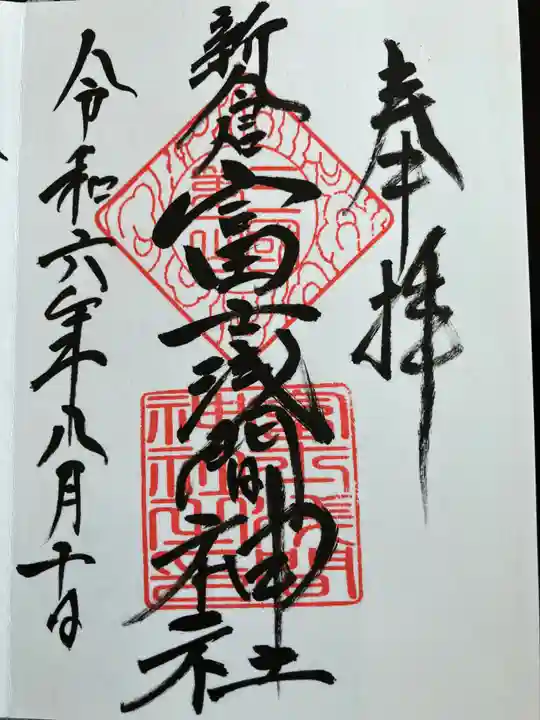 奉拝
新倉富士浅間神社
令和六年八月十日